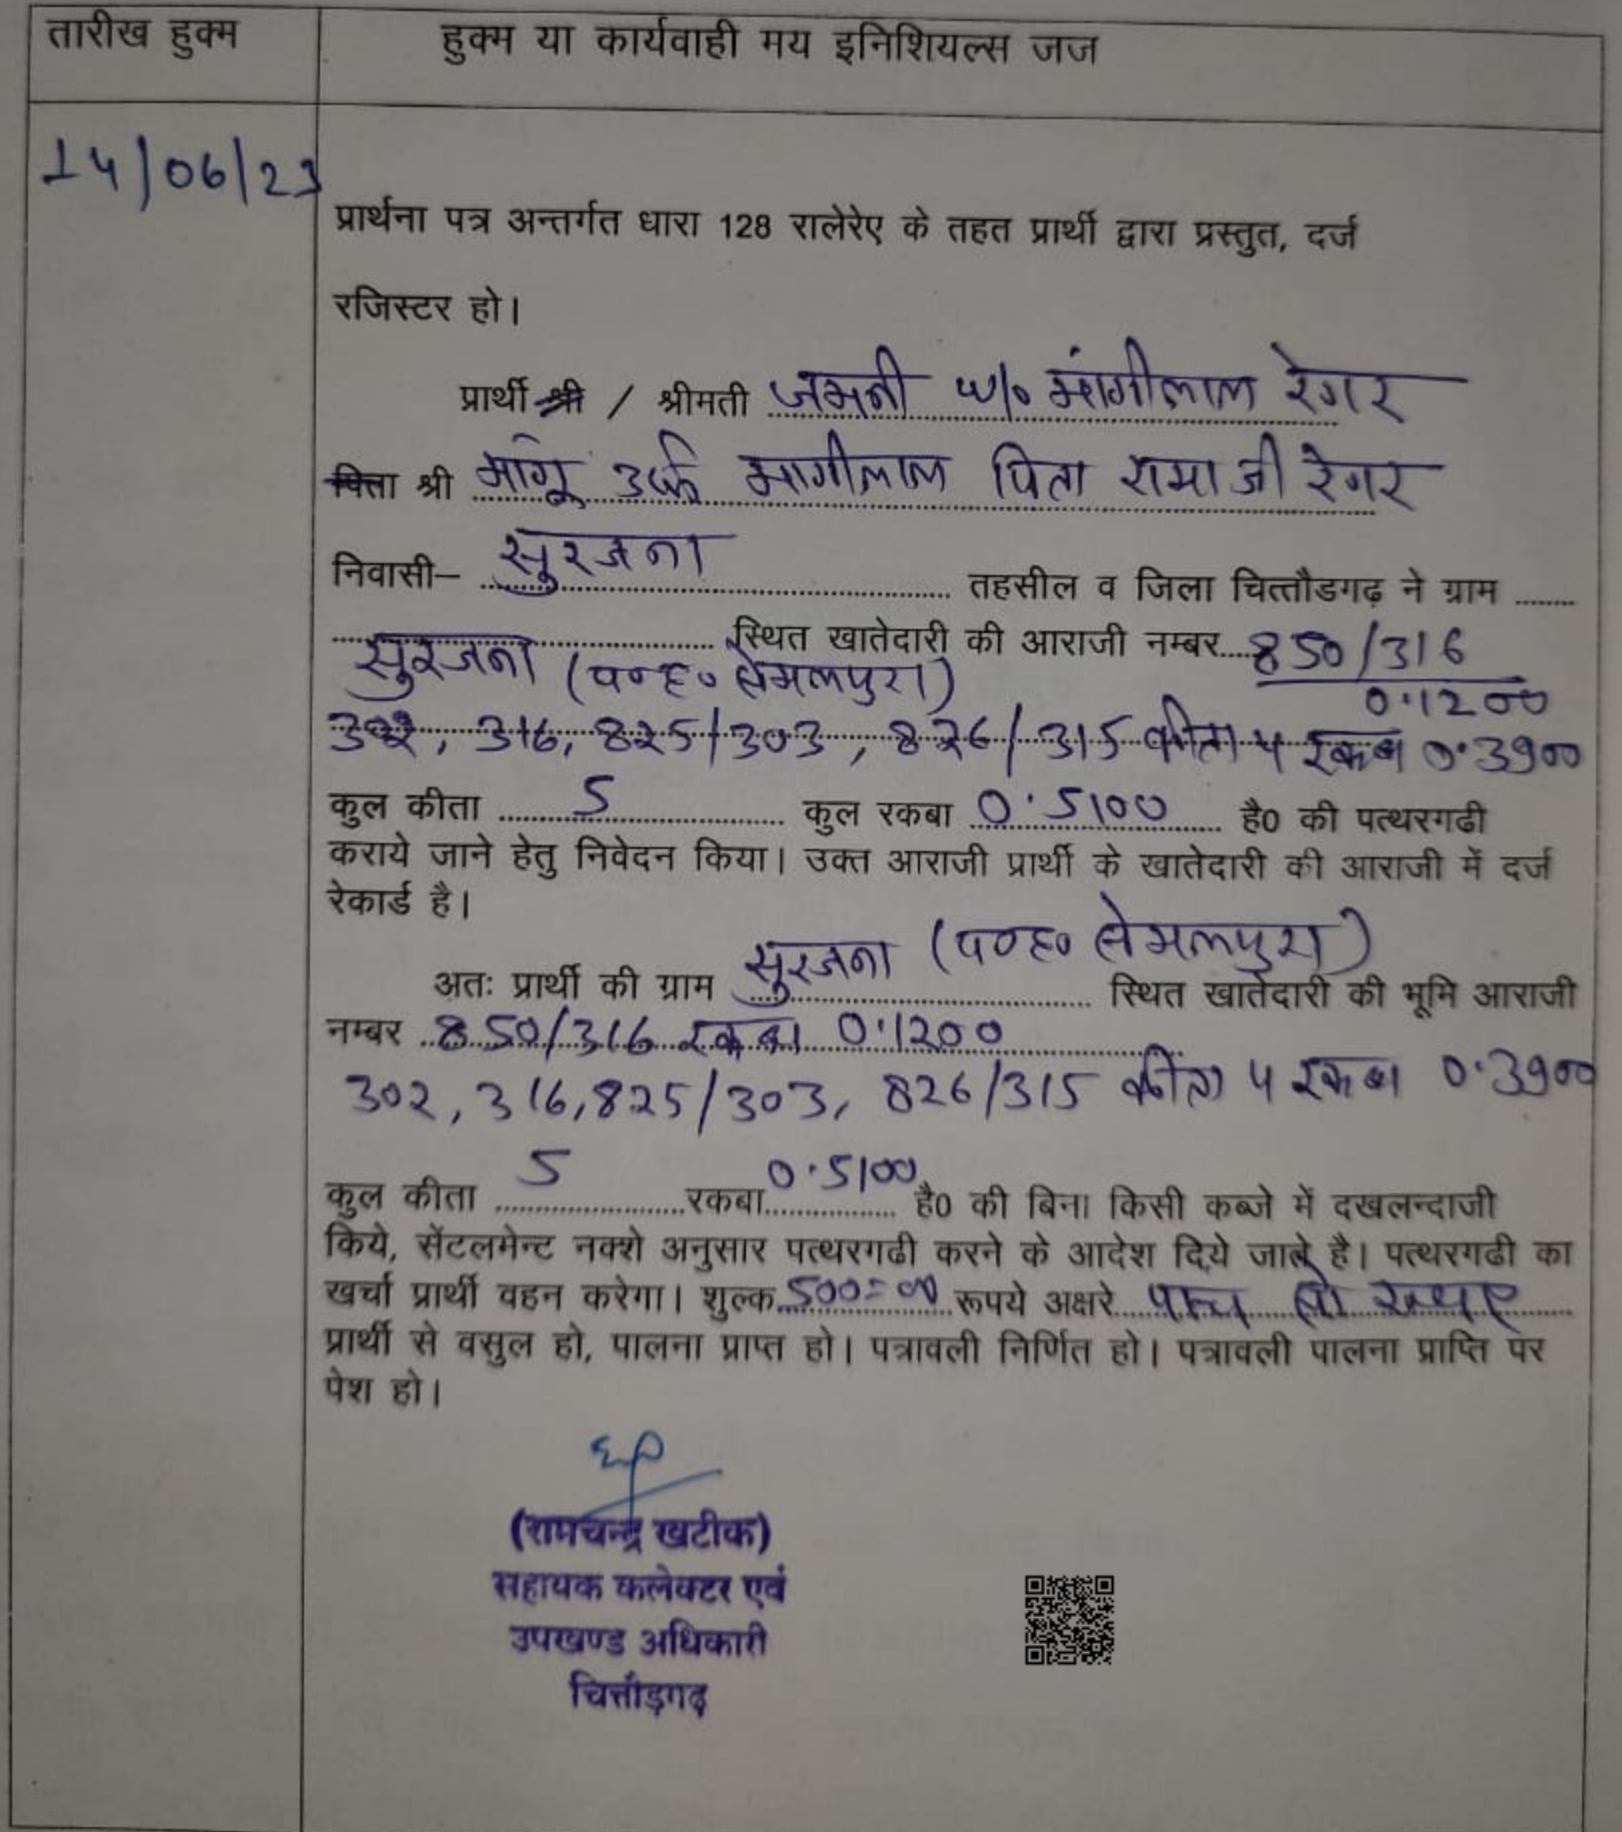 तारीख हुक्म
हुक्म या कार्यवाही मय इनिशियल्स जज
14/06/23
प्रार्थना पत्र अन्तर्गत धारा 128 रालेरेए के तहत प्रार्थी द्वारा प्रस्तुत, दर्ज
रजिस्टर हो।
प्रार्थी श्री / श्रीमती जमनी w/o मांगीलाल रेगर
पिता श्री मांगू उर्फ मागीलाल पिता रामा जी रेगर
निवासी– सुरजना तहसील व जिला चित्तौडगढ़ ने ग्राम
स्थित खातेदारी की आराजी नम्बर 850/316
सुरजना (प०ह० सेमलपुरा)
0.1200
302, 316, 825/303, 826/315 कीता 4 रकबा 0.3900
कुल कीता 5 कुल रकबा 0.5100 है0 की पत्थरगढी
कराये जाने हेतु निवेदन किया। उक्त आराजी प्रार्थी के खातेदारी की आराजी में दर्ज
रेकार्ड है।
अतः प्रार्थी की ग्राम सुरजना (प०ह० सेमलपुरा) स्थित खातेदारी की भूमि आराजी
नम्बर 850/316 रकबा 0.1200
302, 316, 825/303, 826/315 कीता 4 रकबा 0.3900
कुल कीता 5 रकबा 0.5100 है0 की बिना किसी कब्जे में दखलन्दाजी
किये, सेंटलमेन्ट नक्शे अनुसार पत्थरगढी करने के आदेश दिये जाते है। पत्थरगढी का
खर्चा प्रार्थी वहन करेगा। शुल्क 500=00 रूपये अक्षरे पांच सो रूपए
प्रार्थी से वसुल हो, पालना प्राप्त हो। पत्रावली निर्णित हो। पत्रावली पालना प्राप्ति पर
पेश हो।
(रामचन्द्र खटीक)
सहायक कलेक्टर एवं
उपखण्ड अधिकारी
चित्तौड़गढ़